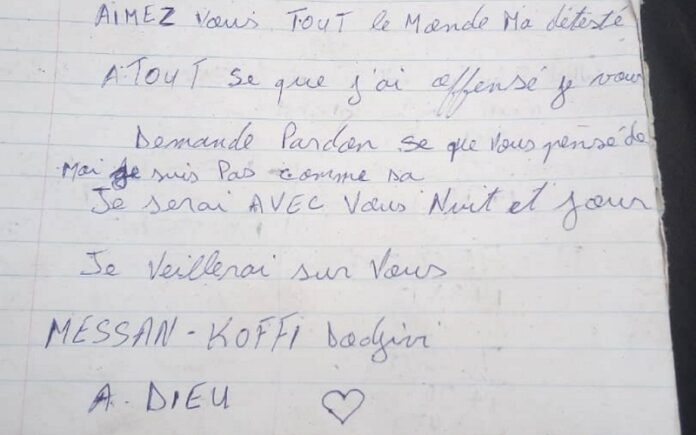 AIMEZ Vous TOUT le Monde Ma détesté
A TOUT se que j'ai offensé je vous
Demande Pardon se que vous pensé de
Moi je suis Pas comme sa
Je serai AVEC Vous Nuit et jour
Je Veillerai sur Vous
MESSAN - KOFFI Dodjivi
A. DIEU ♡